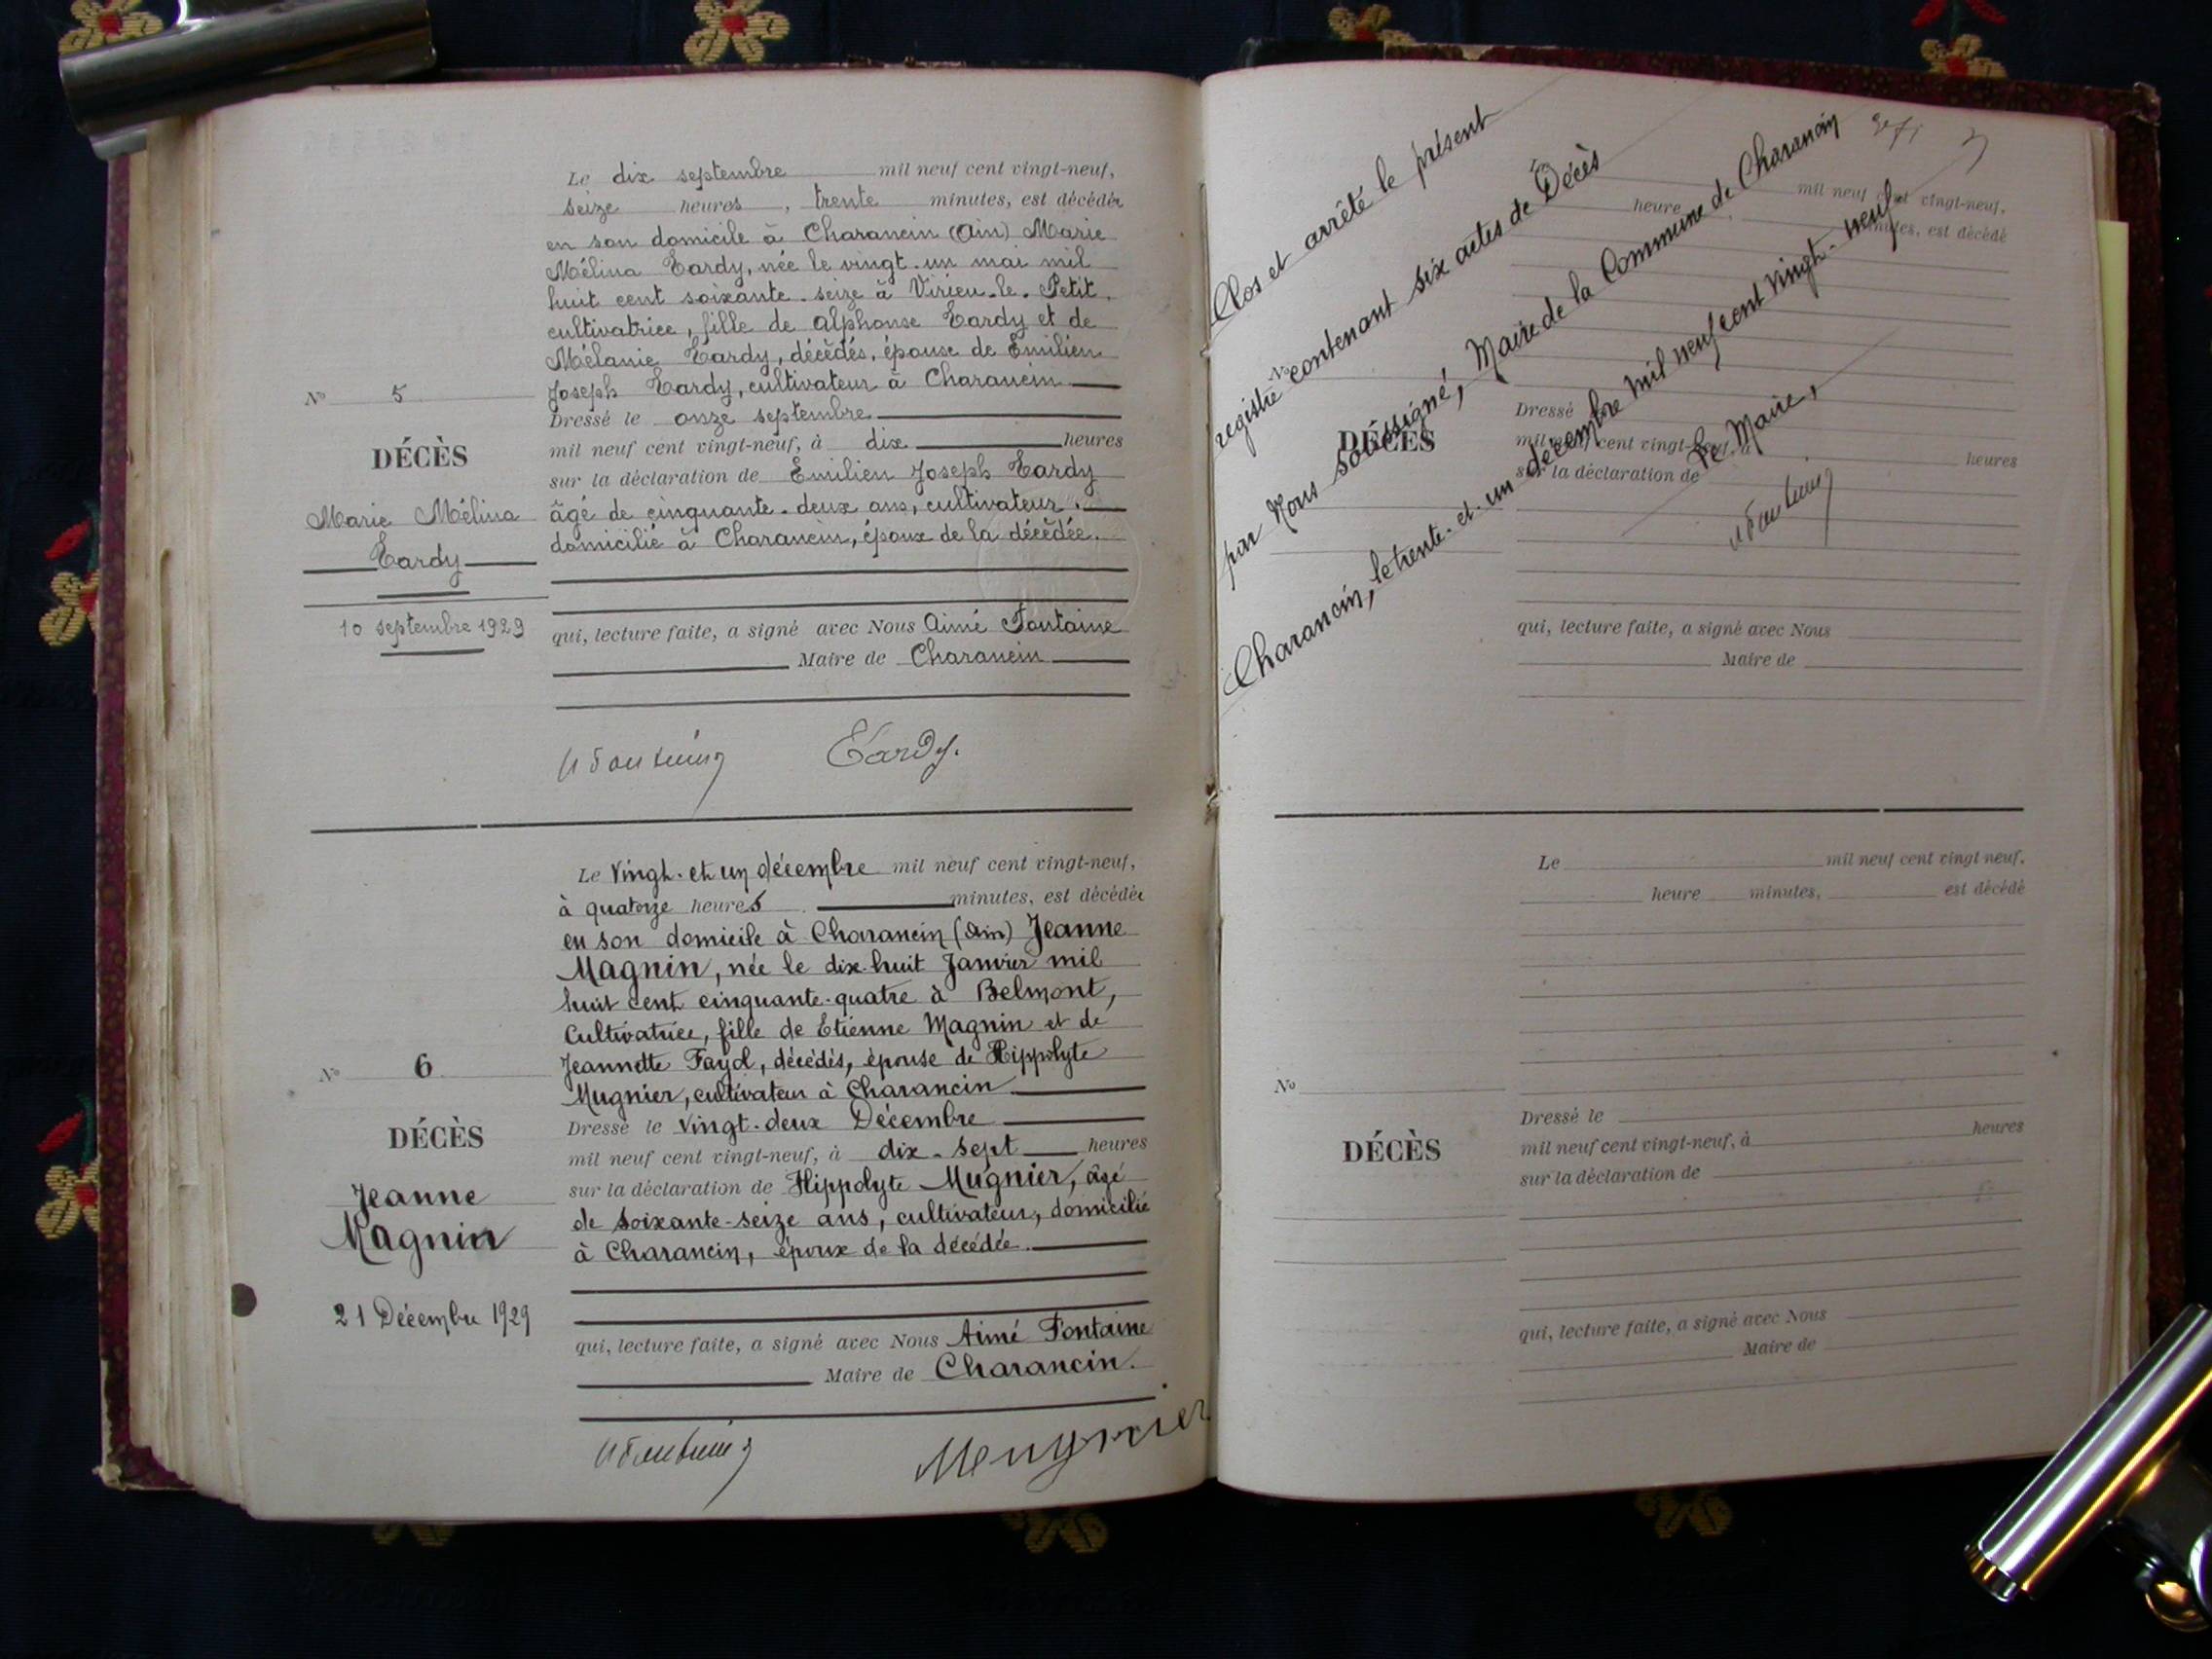 Le dix septembre mil neuf cent vingt-neuf,
seize heures, trente minutes, est décédée
en son domicile à Charancin (Ain) Marie
Mélina Tardy, née le vingt-un mai mil
huit cent soixante-seize à Virieu-le-Petit,
cultivatrice, fille de Alphonse Tardy et de
Mélanie Tardy, décédés, épouse de Emilien
Joseph Tardy, cultivateur à Charancin
Dressé le onze septembre
mil neuf cent vingt-neuf, à dix heures
sur la déclaration de Emilien Joseph Tardy
âgé de cinquante-deux ans, cultivateur
domicilié à Charancin, époux de la décédée.
qui, lecture faite, a signé avec Nous Aimé Fontaine
Maire de Charancin
No 5
DÉCÈS
Marie Mélina
Tardy
10 septembre 1929
Tardy.
Le vingt-et un décembre mil neuf cent vingt-neuf,
à quatorze heures minutes, est décédée
en son domicile à Charancin (Ain) Jeanne
Magnin, née le dix-huit Janvier mil
huit cent cinquante-quatre à Belmont,
Cultivatrice, fille de Etienne Magnin et de
Jeannette Fayol, décédés, épouse de Hippolyte
Mugnier, cultivateur à Charancin
Dressé le vingt-deux Décembre
mil neuf cent vingt-neuf, à dix-sept heures
sur la déclaration de Hippolyte Mugnier, âgé
de soixante-seize ans, cultivateur, domicilié
à Charancin, époux de la décédée.
qui, lecture faite, a signé avec Nous Aimé Fontaine
Maire de Charancin.
No 6
DÉCÈS
Jeanne
Magnin
21 Décembre 1929
Meugnier
Clos et arrêté le présent
registre contenant six actes de Décès
par Nous soussigné, Maire de la Commune de Charancin
Charancin, le trente-et-un décembre mil neuf cent vingt-neuf
Le Maire,
Le mil neuf cent vingt-neuf,
heure minutes, est décédé
No
DÉCÈS
Dressé
mil neuf cent vingt-neuf, à heures
sur la déclaration de
qui, lecture faite, a signé avec Nous
Maire de
Le mil neuf cent vingt-neuf,
heure minutes, est décédé
No
DÉCÈS
Dressé le
mil neuf cent vingt-neuf, à heures
sur la déclaration de
qui, lecture faite, a signé avec Nous
Maire de